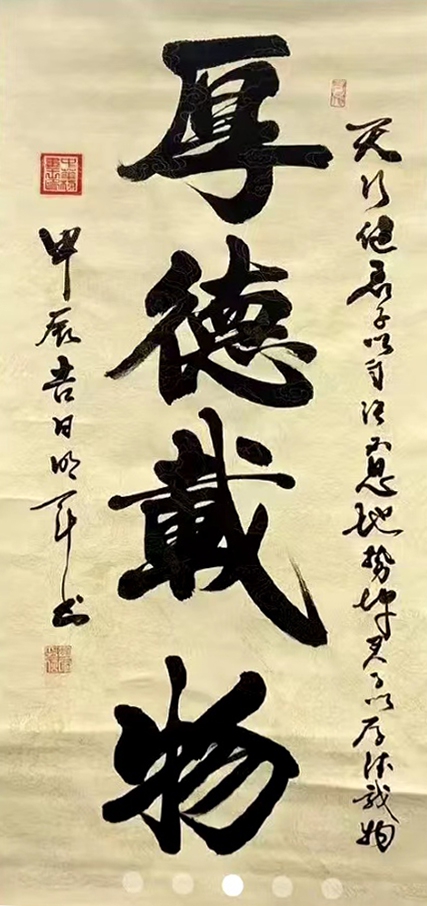 天行健君子以自强不息地势坤君子以厚德载物
厚德載物
甲辰吉日明军书